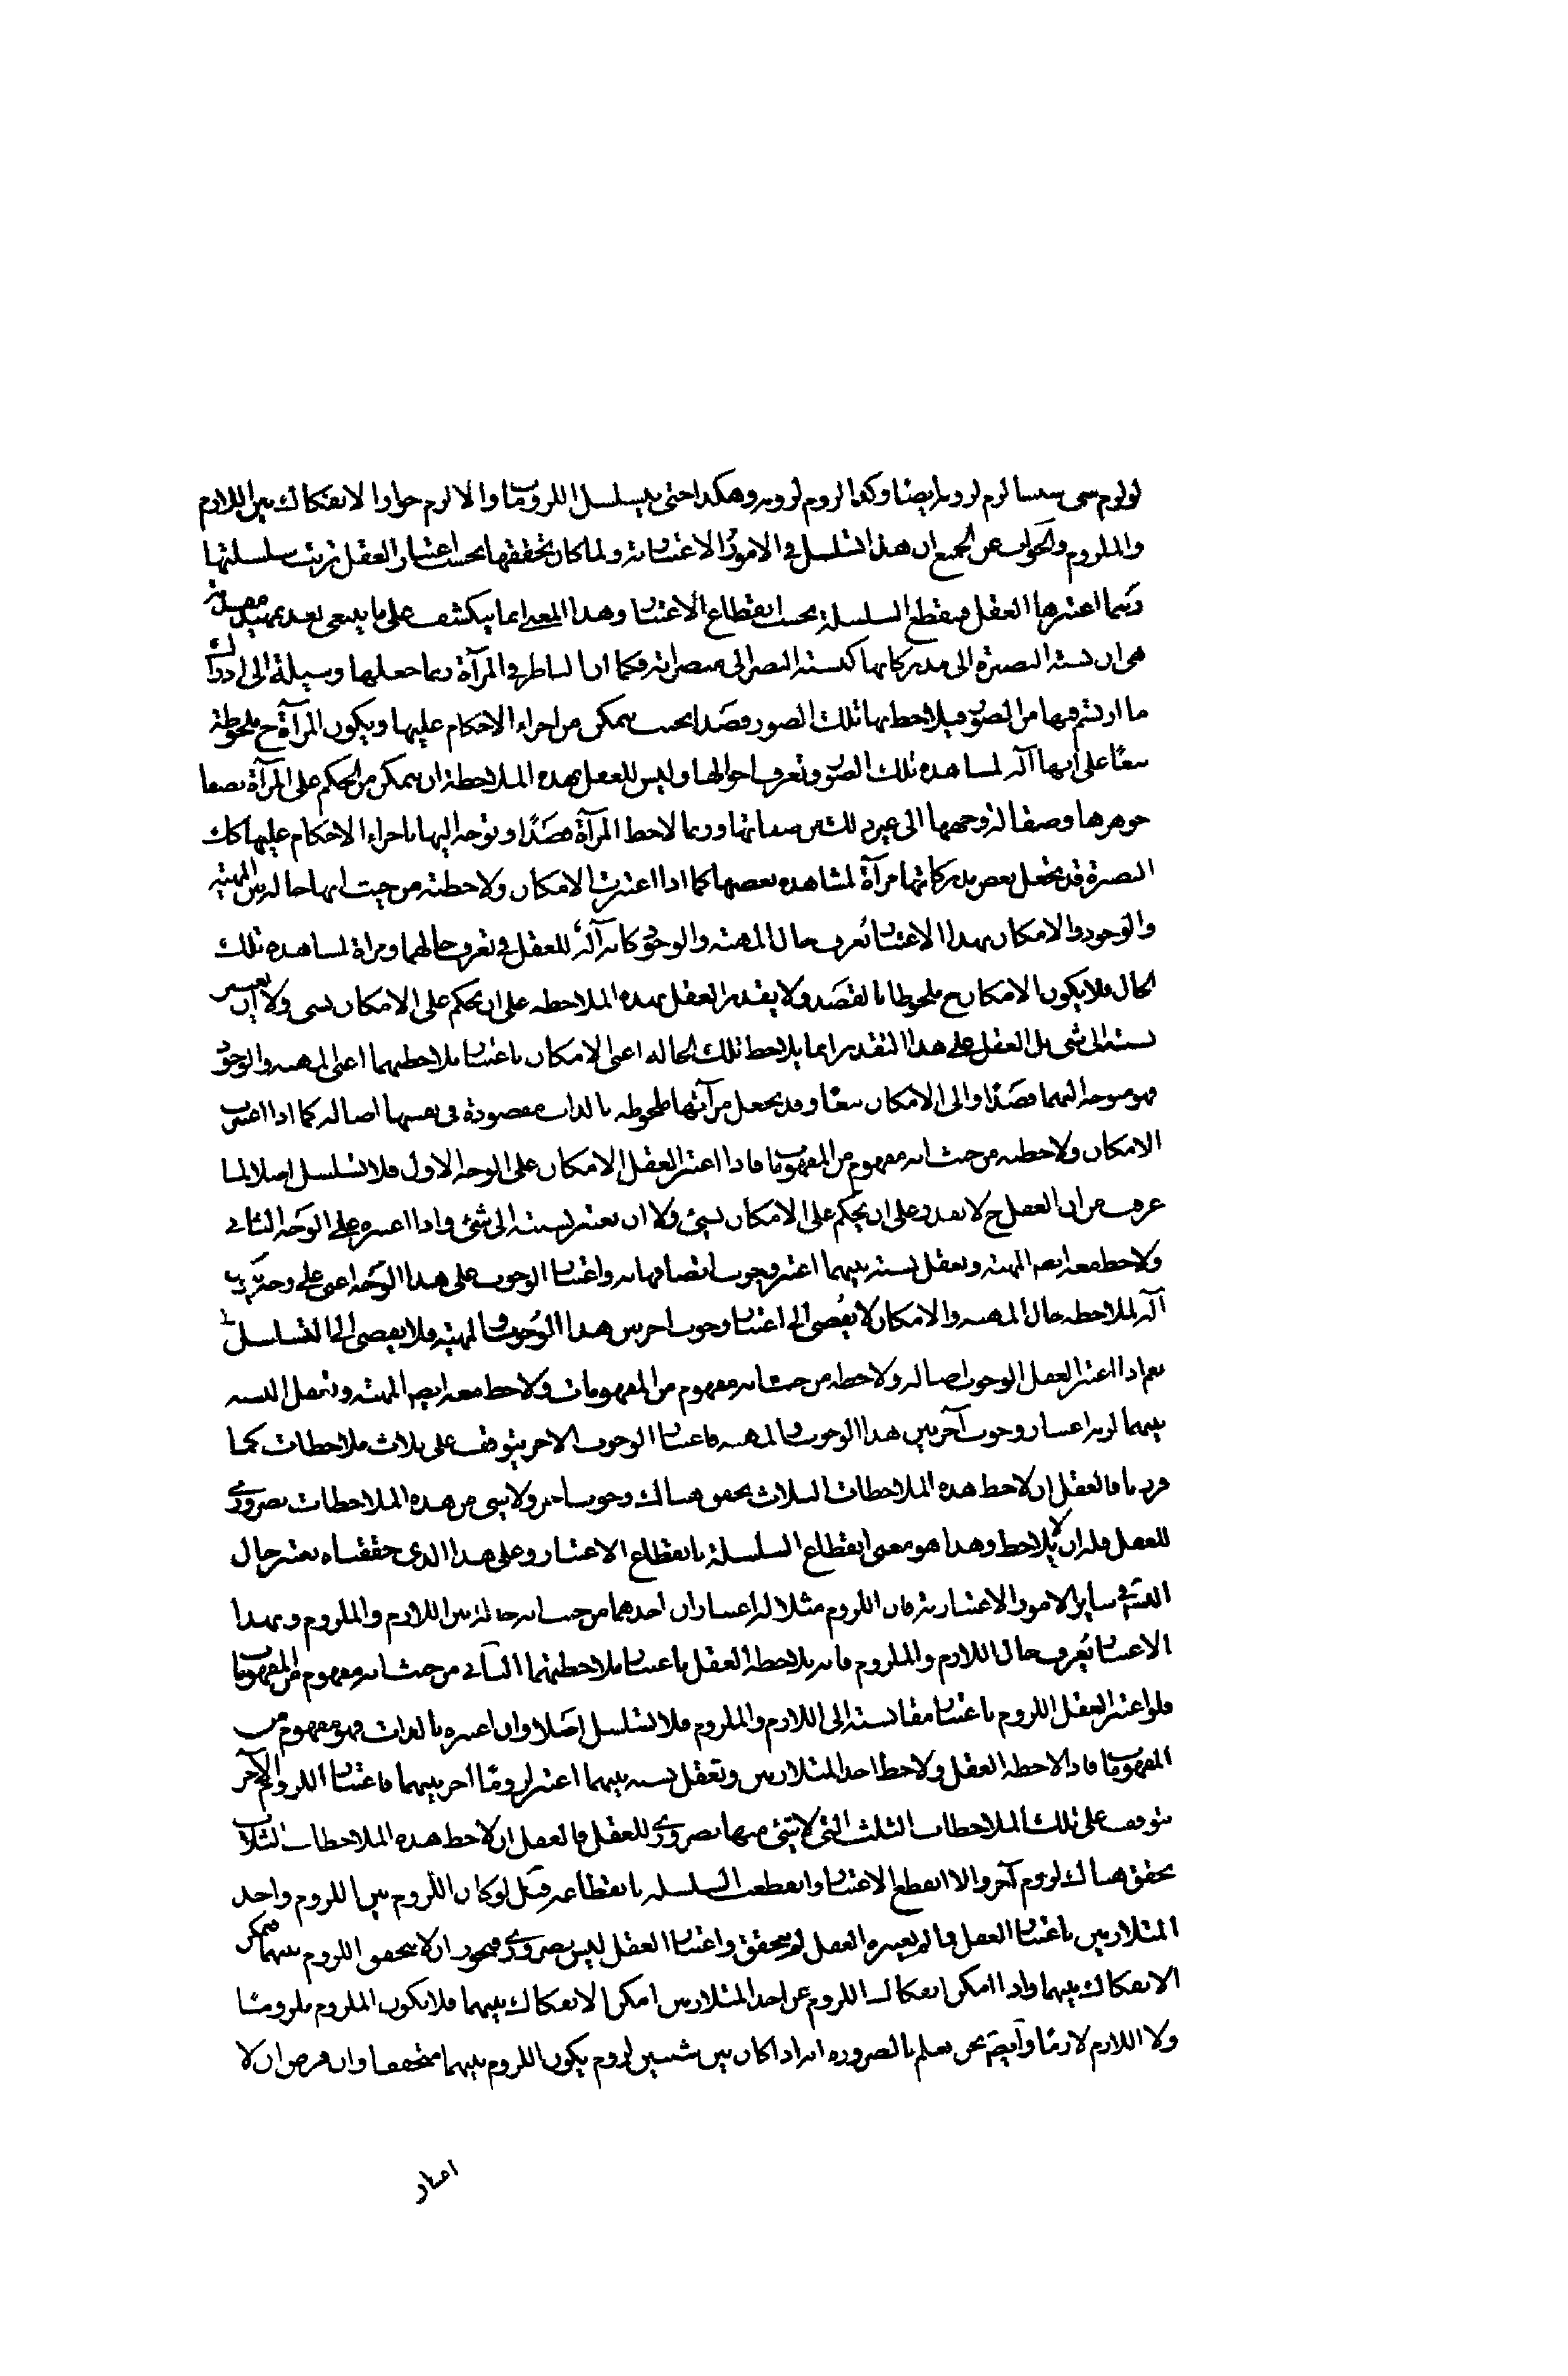 لو لزم شيء شيئا لزم لزومه ايضا وكذا لزوم لزومه وهكذا حتى يتسلسل اللزومات والا لزم جواز الانفكاك بين اللازم
والملزوم والجواب عن الجميع ان هذا التسلسل في الامور الاعتبارية ولما كان تحققها بحسب اعتبار العقل ترتبت سلسلتها
ربما اعتبرها العقل فينقطع السلسلة بحسب انقطاع الاعتبار وهذا المعنى انما ينكشف على ما ينبغي بعد تمهيد مقدمة
هي ان نسبة البصيرة الى مدركاتها كنسبة البصر الى مبصراته فكما ان الناظر في المرآة ربما جعلها وسيلة الى ادراك
ما ارتسم فيها من الصور فيلاحظ بها تلك الصور قصدا بحيث يتمكن من اجراء الاحكام عليها ويكون المرآة ح ملحوظة
تبعا على انها آلة لمشاهدة تلك الصور وتعرف احوالها وليس للعقل بهذه الملاحظة ان يتمكن من الحكم على المرآة بصفا
جوهرها وصقالة وجهها الى غير ذلك من صفاتها وربما لاحظ المرآة قصدا وتوجه اليها باجراء الاحكام عليها كك
البصيرة قد تجعل بعض مدركاتها مرآة لمشاهدة بعضها كما اذا اعتبرت الامكان ولاحظته من حيث انها حالة بين المهية
والوجود والامكان بهذا الاعتبار تعرف حال المهية والوجود كانه آلة للعقل في تعرف حالهما ومرآة لمشاهدة تلك
الحال فلا يكون الامكان ح ملحوظا بالقصد ولا يقدر العقل بهذه الملاحظة على ان يحكم على الامكان بشيء ولا ان يعتبر
نسبته الى شيء بل العقل على هذا التقدير انما يلاحظ تلك الحالة اعني الامكان باعتبار ملاحظتهما اعني المهية والوجود
فهو متوجه اليهما قصدا والى الامكان تبعا وقد يجعل مرآتها ملحوظة بالذات مقصودة في نفسها اصالة كما اذا اعتبرت
الامكان ولاحظته من حيث انه مفهوم من المفهومات فاذا اعتبر العقل الامكان على الوجه الاول فلا تسلسل اصلا لما
عرفت من ان العقل ح لا يقدر على ان يحكم على الامكان بشيء ولا ان يعتبر نسبته الى شيء واذا اعتبره على الوجه الثاني
ولاحظ معه ايضم المهية وتعقل نسبة بينهما اعتبر وجوب اتصافها به واعتبار الوجوب على هذا الوجه اعني على وجه يكون
آلة لملاحظة حال المهية والامكان لا يفضي الى اعتبار وجوب اخر بين هذا الوجوب والمهية فلا يفضي الى التسلسل
نعم اذا اعتبر العقل الوجوب اصالة ولاحظه من حيث انه مفهوم من المفهومات ولاحظ معه ايضم المهية وتعقل النسبة
بينهما لزمه اعتبار وجوب آخر بين هذا الوجوب والمهية فاعتبار الوجوب الاخر يتوقف على ثلاث ملاحظات كما
قررنا فالعقل ان لاحظ هذه الملاحظات الثلاث تحقق هناك وجوب اخر ولا شيء من هذه الملاحظات بضروري
للعقل فله ان لا يلاحظ وهذا هو معنى انقطاع السلسلة بانقطاع الاعتبار وعلى هذا الذي حققناه يعتبر حال
القسم في ساير الامور الاعتبارية فان اللزوم مثلا له اعتباران احدهما من حيث انه حالة بين اللازم والملزوم وبهذا
الاعتبار يعرف حال اللازم والملزوم فانه يلاحظه العقل باعتبار ملاحظتهما الثاني من حيث انه مفهوم من المفهومات
فلو اعتبر العقل اللزوم باعتبار مقايسته الى اللازم والملزوم فلا تسلسل اصلا وان اعتبره بالذات فهو مفهوم من
المفهومات فاذا لاحظه العقل ولاحظ احد المتلازمين وتعقل نسبة بينهما اعتبر لزوما اخر بينهما فاعتبار اللزوم الآخر
يتوقف على تلك الملاحظات الثلث التي لا شيء منها بضروري للعقل فالعقل ان لاحظ هذه الملاحظات الثلاث
تحقق هناك لزوم آخر والا انقطع الاعتبار وانقطعت السلسلة بانقطاعه قيل لو كان اللزوم بين اللزوم واحد
المتلازمين باعتبار العقل فما لم يعتبره العقل لم يتحقق واعتبار العقل ليس بضروري فيجوز ان لا يتحقق اللزوم بينهما فيمكن
الانفكاك بينهما واذا امكن انفكاك اللزوم عن احد المتلازمين امكن الانفكاك بينهما فلا يكون الملزوم ملزوما
ولا اللازم لازما وايضم نحن نعلم بالضرورة انه اذا كان بين شيئين لزوم يكون اللزوم بينهما متحققا وان فرض ان لا
اعتبار